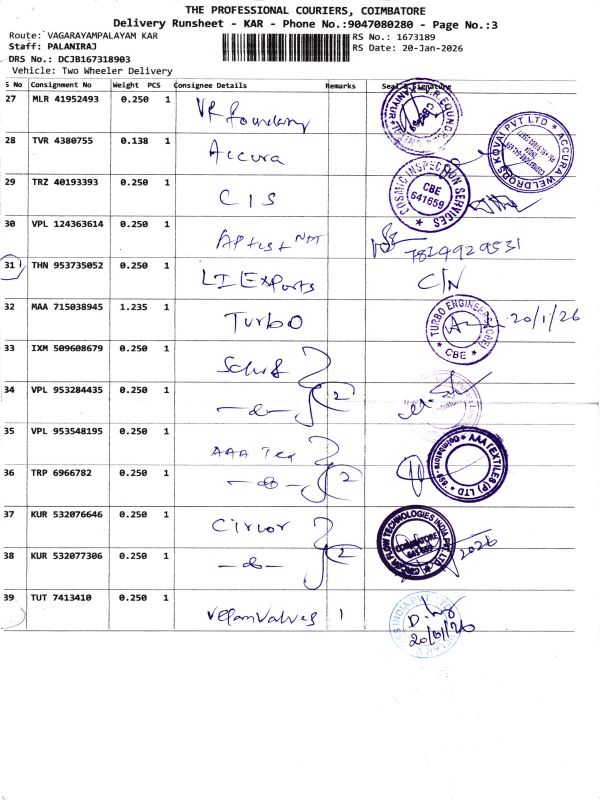 THE PROFESSIONAL COURIERS, COIMBATORE
Delivery Runsheet - KAR - Phone No.:9047080280 - Page No.:3
Route: VAGARAYAMPALAYAM KAR
RS No.: 1673189
Staff: PALANIRAJ
RS Date: 20-Jan-2026
DRS No.: DCJB167318903
Vehicle: Two Wheeler Delivery
S No Consignment No Weight PCS Consignee Details Remarks Seal & Signature
27 MLR 41952493 0.250 1 VR Foundary
28 TVR 4380755 0.138 1 Accura
ACCURA WELDRODS KOVAI PVT LTD
29 TRZ 40193393 0.250 1 CIS
COSMIC INSPECTION SERVICES
CBE
641659
30 VPL 124363614 0.250 1
31 THN 953735052 0.250 1 LI Exports C/N
32 MAA 715038945 1.235 1 Turbo
TURBO ENGINEERS
CBE
20/1/26
33 IXM 509608679 0.250 1
34 VPL 953284435 0.250 1 -do- 2
35 VPL 953548195 0.250 1 AAA Tex
AAA TEXTILES (P) LTD
36 TRP 6966782 0.250 1 -do- 2
37 KUR 532076646 0.250 1 Circor
CIRCOR FLOW TECHNOLOGIES INDIA PVT. LTD.
COIMBATORE
641659
38 KUR 532077306 0.250 1 -do- 2
2026
39 TUT 7413410 0.250 1 Velan Valves 1
20/01/26